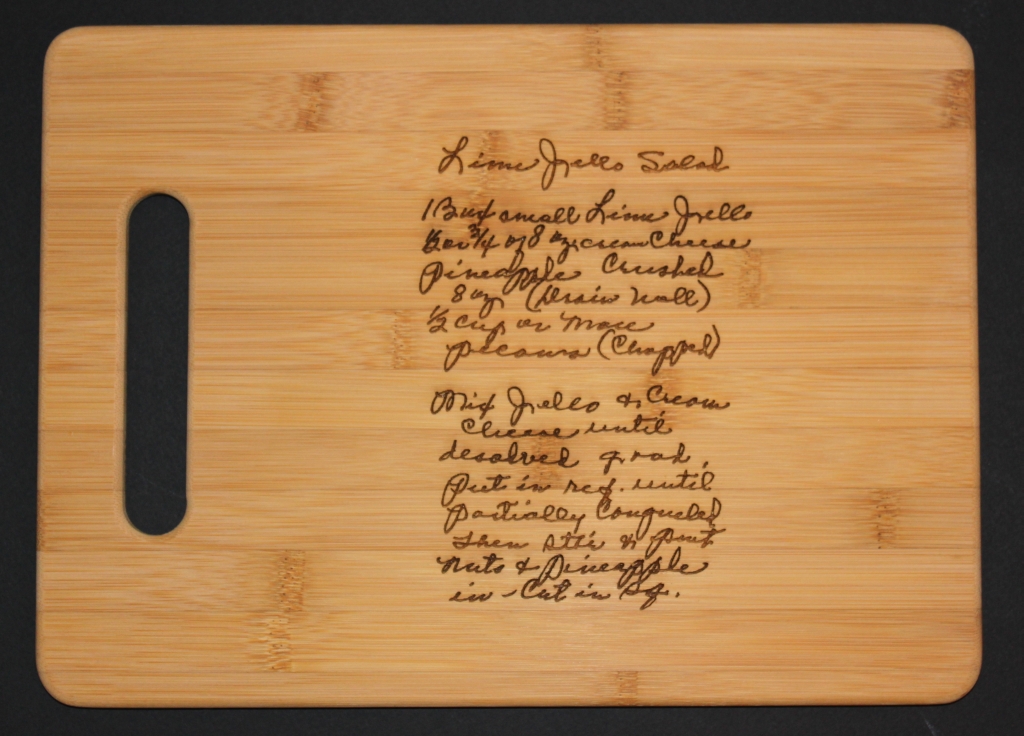 Lime Jello Salad
1 Box small Lime Jello
1/2 or 3/4 of 8 oz. cream Cheese
Pineapple Crushed
8 oz (Drain Well)
1/2 cup or More
pecans (Chopped)
Mix Jello & Cream
Cheese until
desolved good.
Put in ref. until
partially Congueled
then stir & put
nuts & Pineapple
in - Cut in Sq.